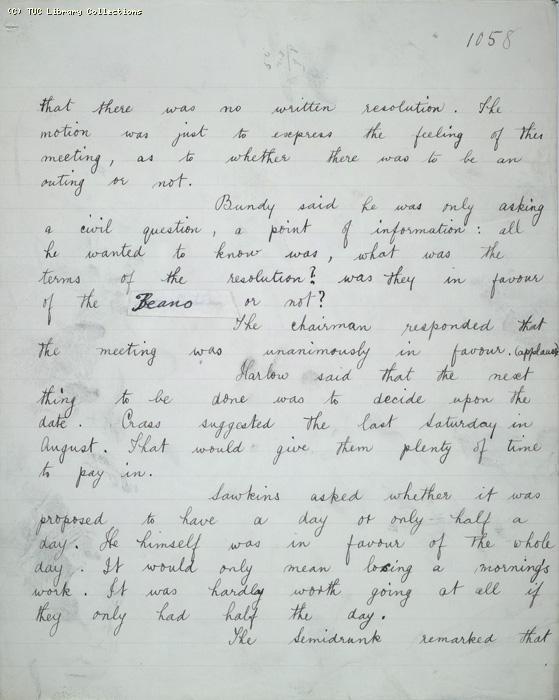 (C) TUC Library Collections
1058
that there was no written resolution. The
motion was just to express the feeling of this
meeting, as to whether there was to be an
outing or not.
Bundy said he was only asking
a civil question, a point of information: all
he wanted to know was, what was the
terms of the resolution? was they in favour
of the Beano or not?
The chairman responded that
the meeting was unanimously in favour. (applause)
Harlow said that the next
thing to be done was to decide upon the
date. Crass suggested the last Saturday in
August. That would give them plenty of time
to pay in.
Sawkins asked whether it was
proposed to have a day or only half a
day. He himself was in favour of the whole
day. It would only mean losing a morning's
work. It was hardly worth going at all if
they only had half the day.
The Semidrunk remarked that